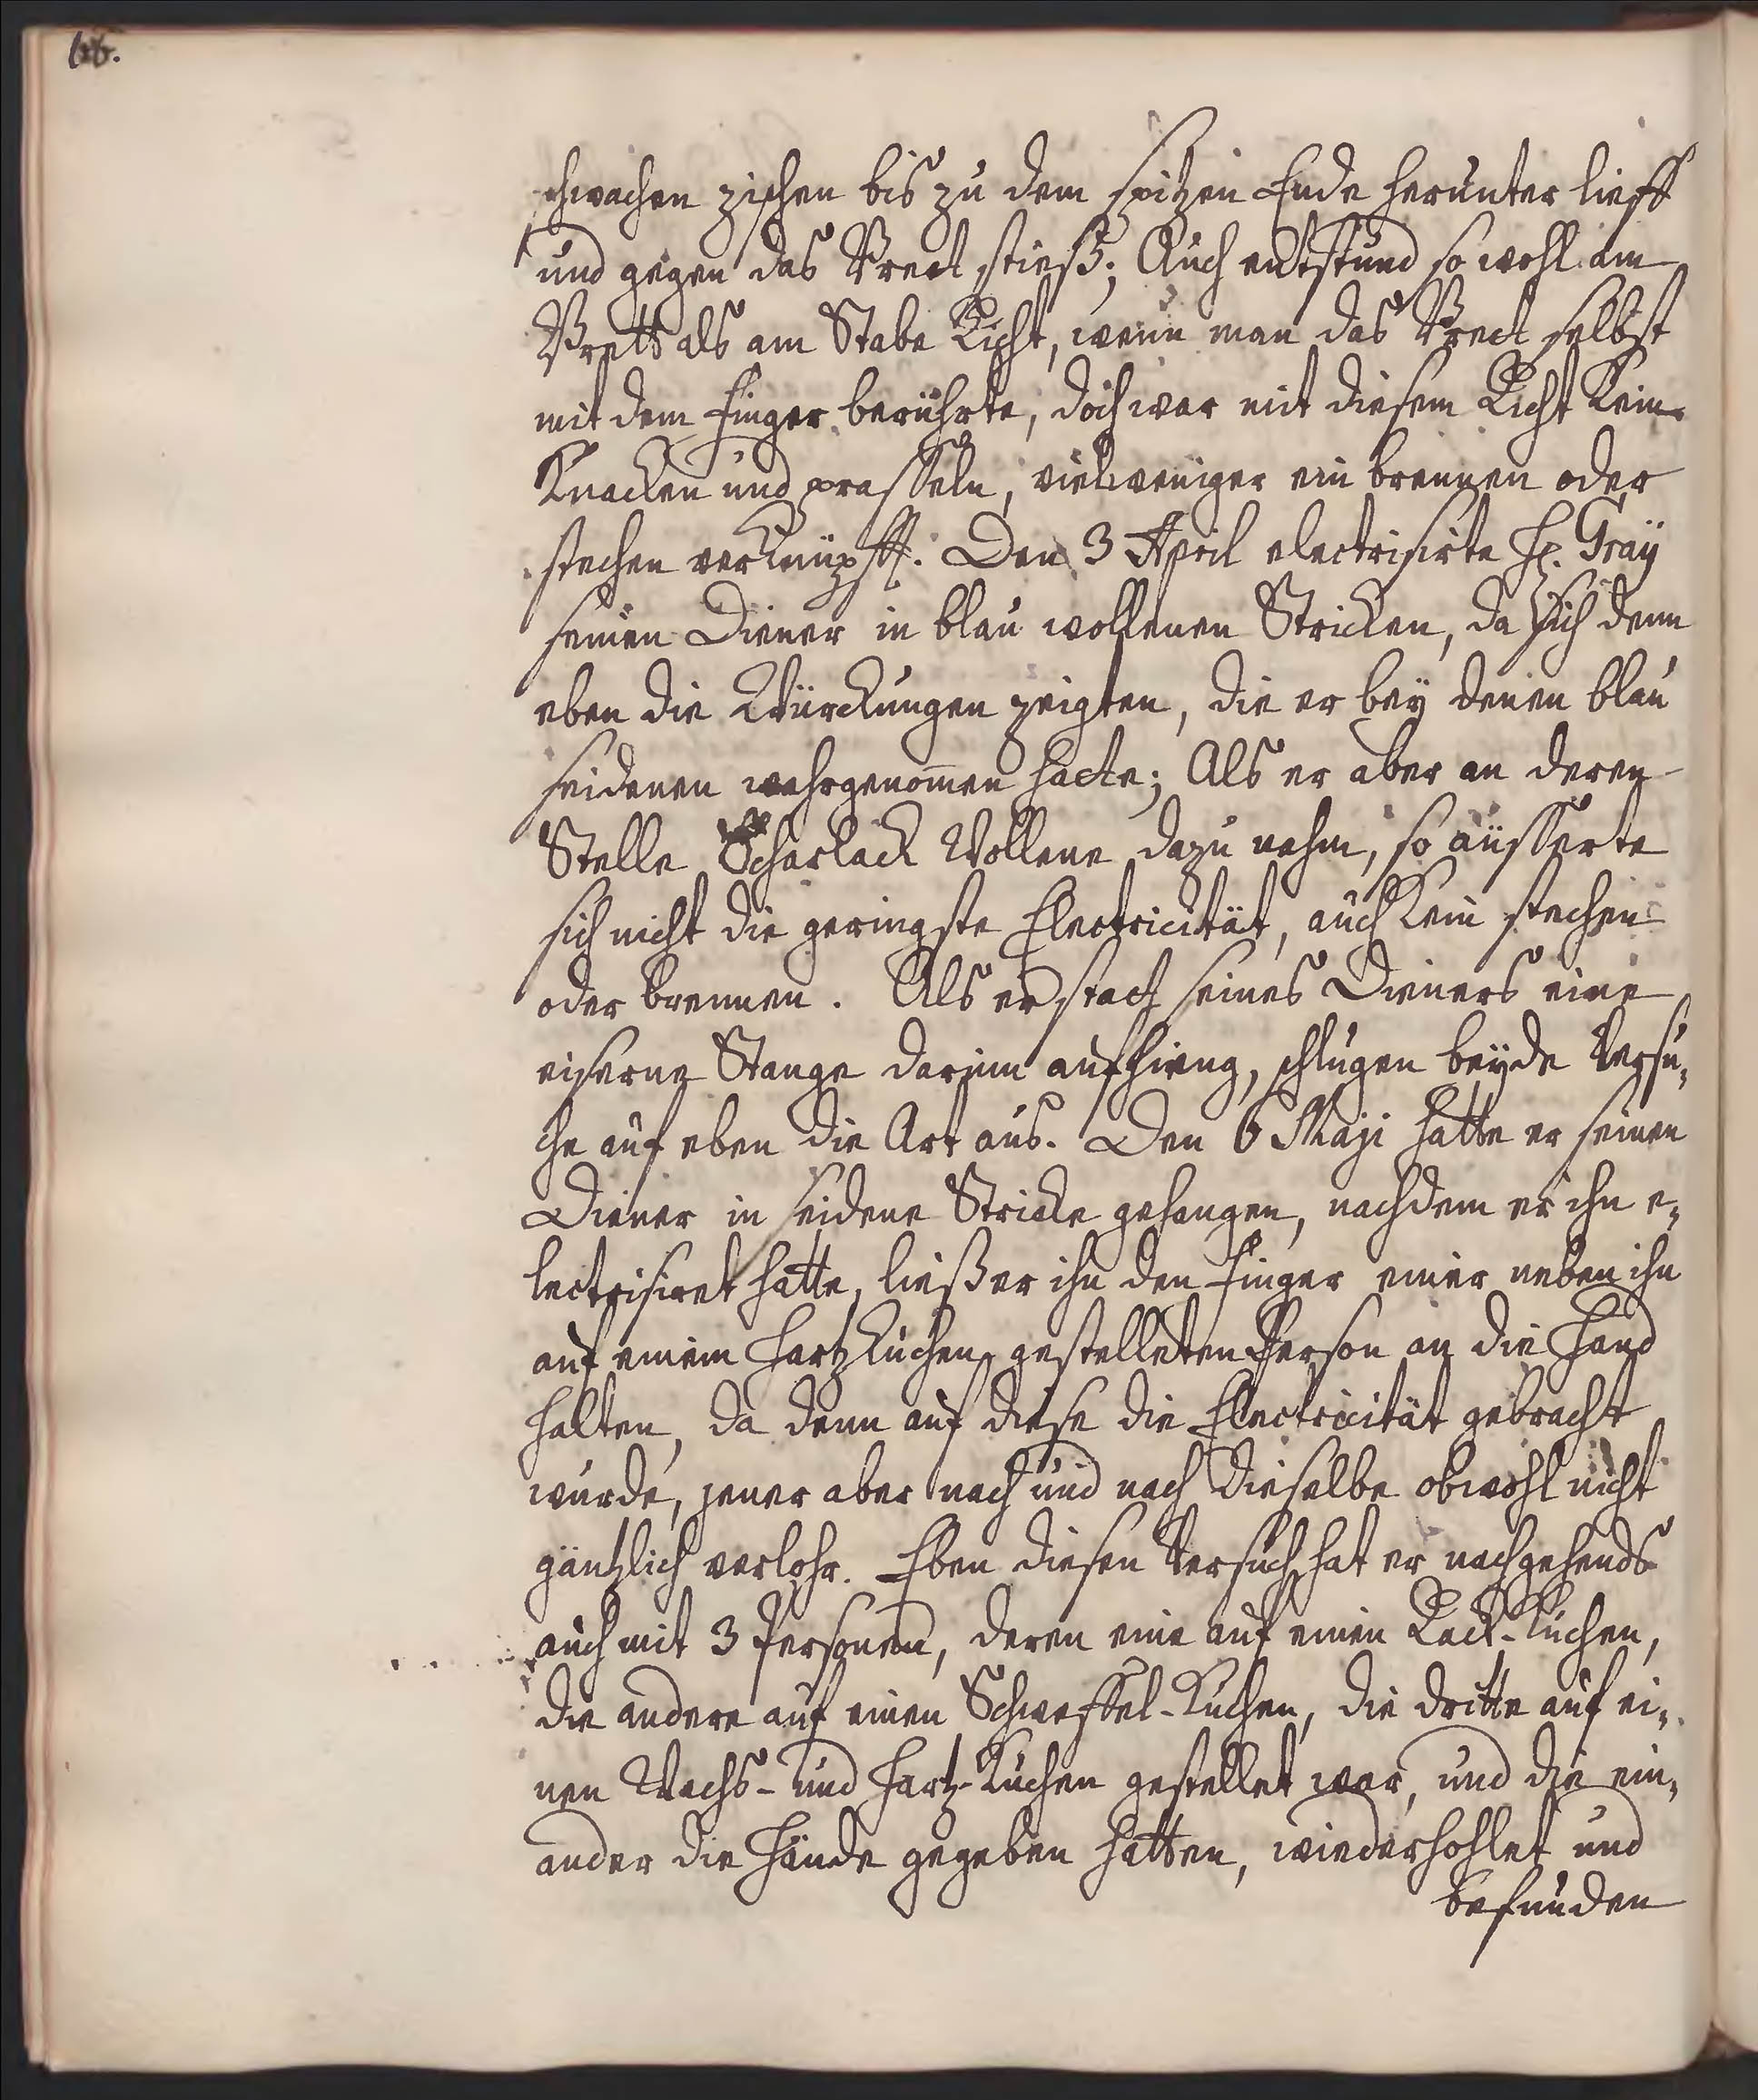 66.
schwachen zischen bis zu dem spitzen Ende herunter lieff
und gegen das Brett stieß; Auch entstund so wohl am
Brett als am Stabe Licht, wenn man das Brett selbst
mit dem Finger berührte, doch war mit diesem Licht kein
Knacken und prasseln, vielweniger ein brennen oder
stechen verknüpfft. Den 3 April electrisirte H. Graÿ
seinen Diener in blau wollenen Stricken, da sich denn
eben die Würckungen zeigten, die er beÿ denen blau
seidenen wahrgenom̄en hatte; Als er aber an deren
Stelle Scharlack Wollene dazu nahm, so äusserte
sich nicht die geringste Electricität, auch kein stechen
oder brennen. Als er statt seines Dieners eine
eiserne Stange darinn aufhieng, schlugen beÿde Versu-
che auf eben die Art aus. Den 6 Maji hatte er seinen
Diener in seidene Stricke gehangen, nachdem er ihn e-
lectrisiret hatte, ließ er ihn den Finger einer neben ihn
auf einem Hartzkuchen gestelleten Person an die Hand
halten, da denn auf diese die Electricität gebracht
wurde, jener aber nach und nach dieselbe obwohl nicht
gäntzlich verlohr. Eben diesen Versuch hat er nachgehends
auch mit 3 Personen, deren eine auf einen Lack-Kuchen,
die andere auf einen Schweffel-Kuchen, die dritte auf ei-
nen Wachs- und Hartz-Kuchen gestellet war, und die ein-
ander die Hände gegeben hatten, wiederhohlet und
befunden